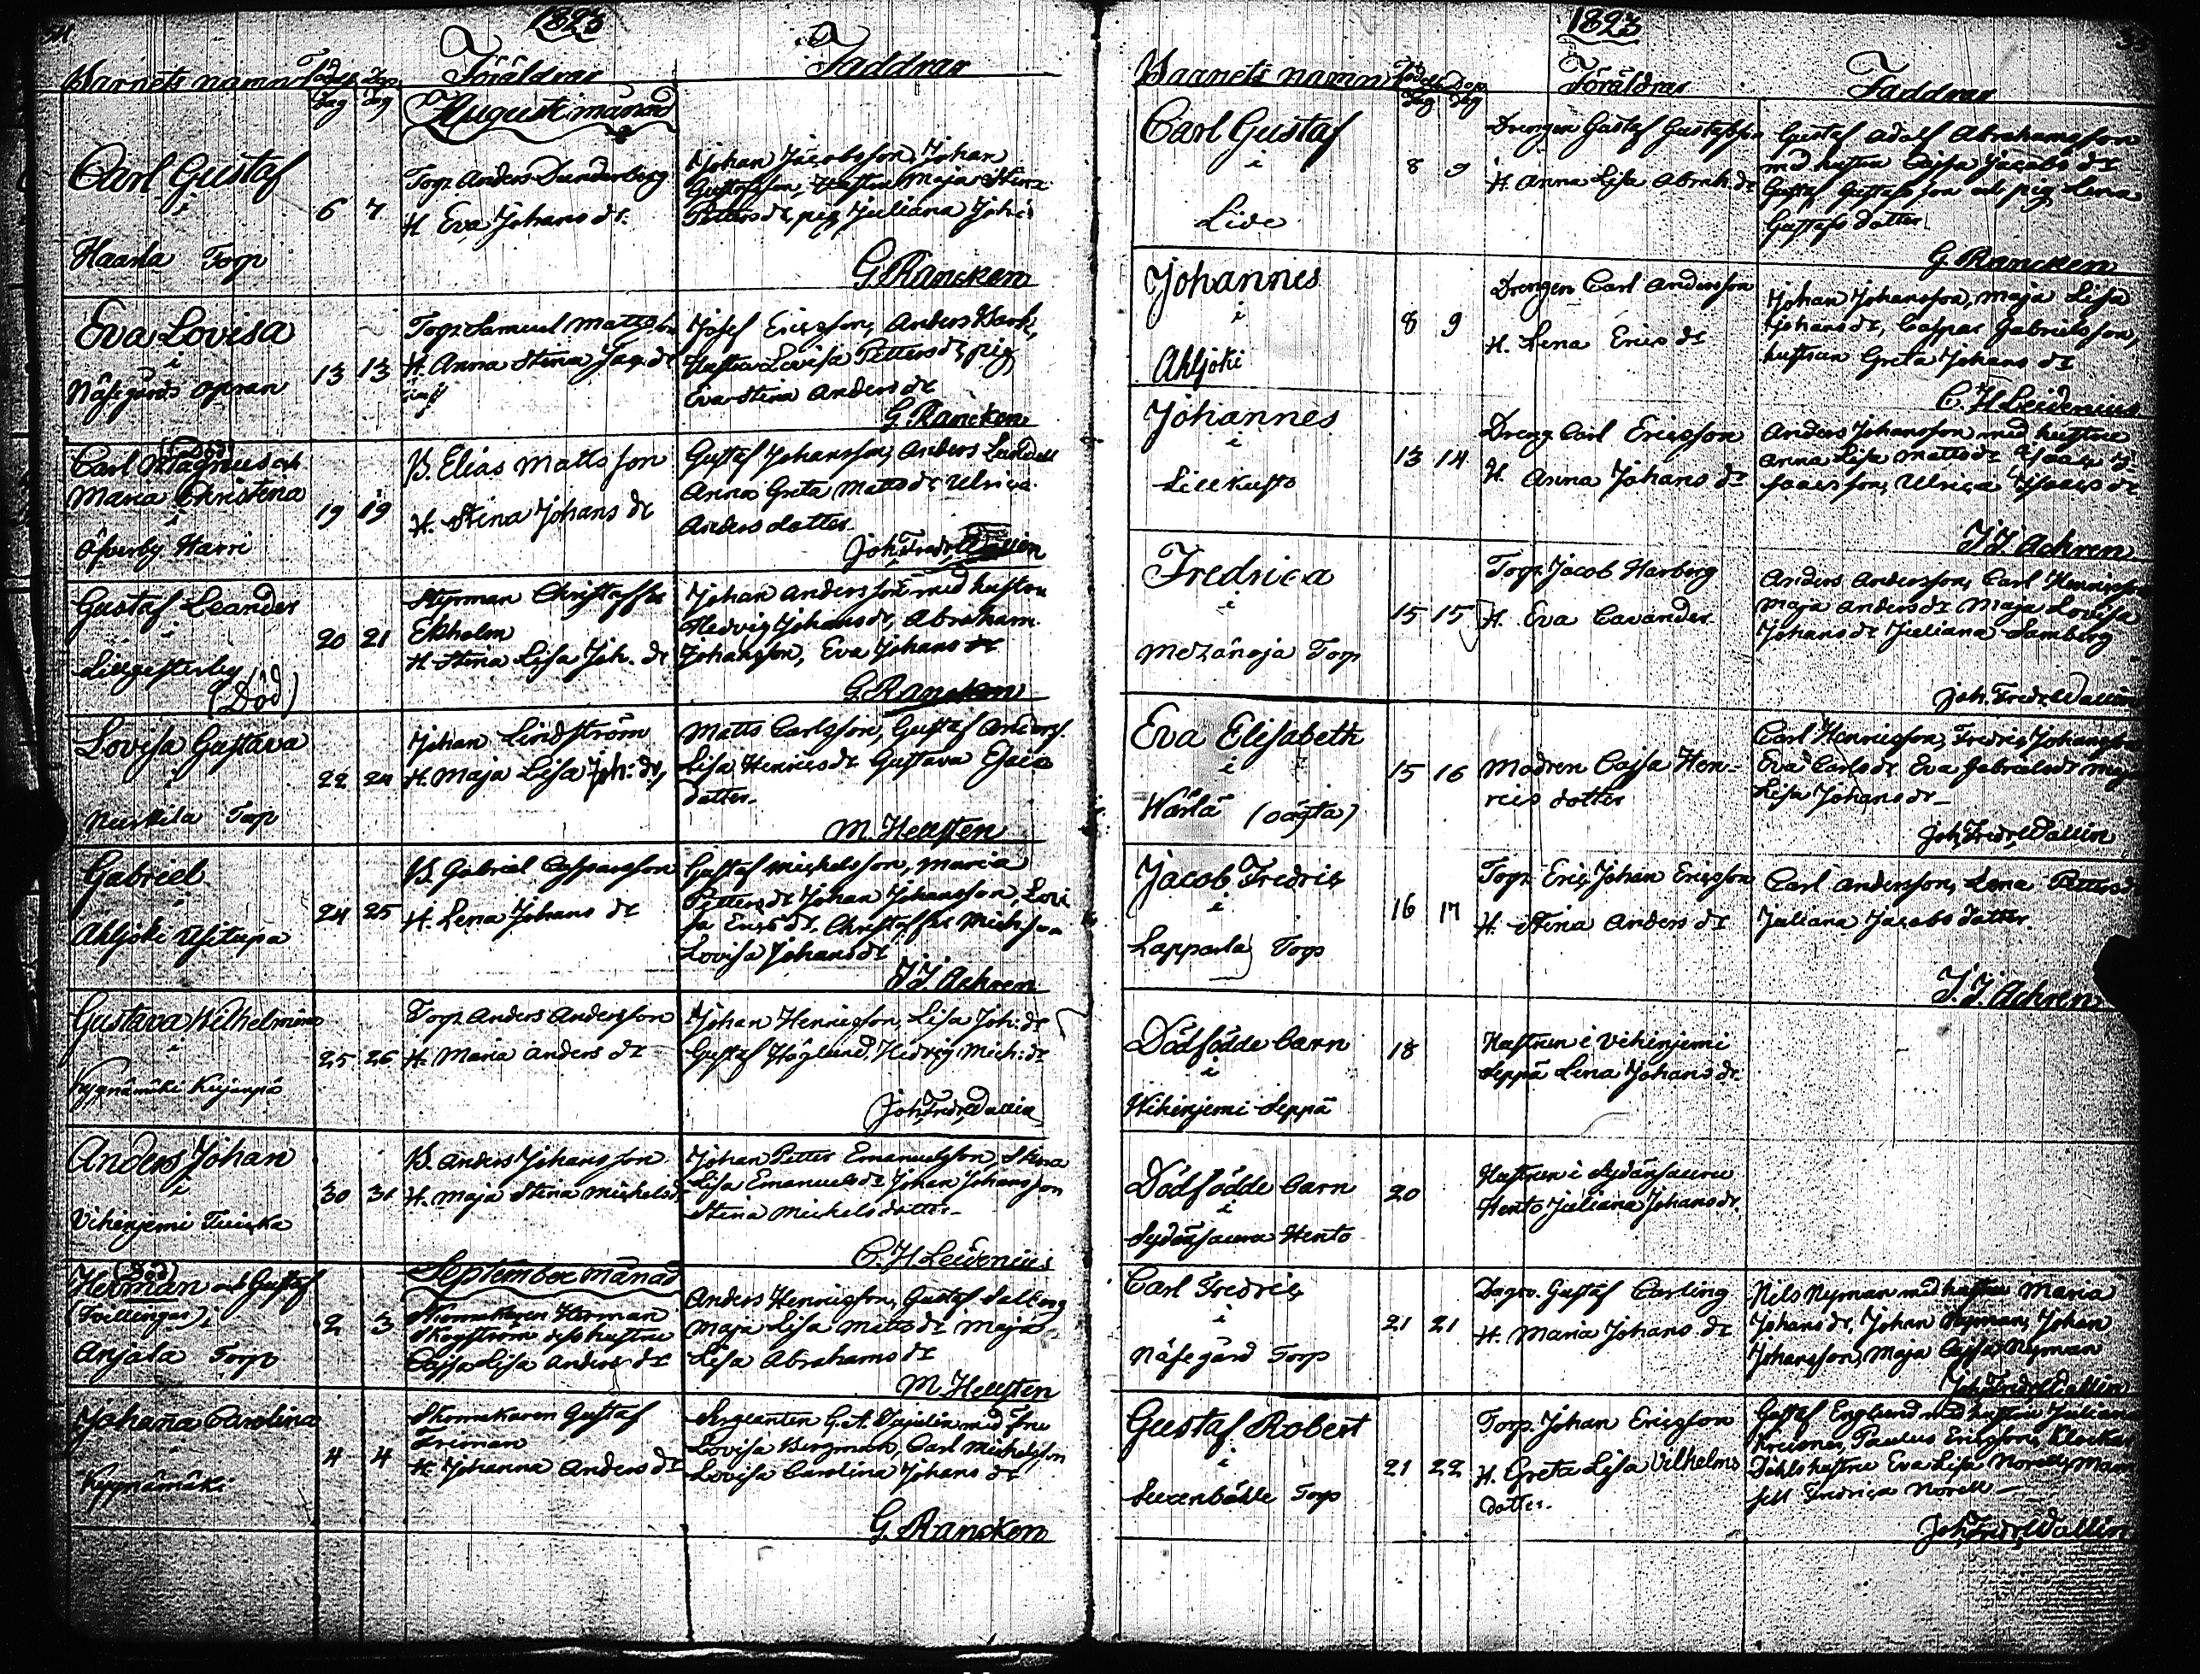 1823
Barnets namn Födelse Dag Dop Dag Föräldrar Faddrar
Augusti månad
Carl Gustaf
i
Haarla Torp
6 7
Torp. Anders Dunderberg
H. Eva Johans dr.
Johan Jacobsson, Johan
Gustafsson, Hustru Maja Stina
Petters dr, pig Juliana Joh:
G. Rancken
Eva Lovisa
i
Näsegårds
13 13
Torp. Samuel Mattsson
H. Anna Stina Jac. dr
Josef Ericsson, Anders
Hustru Lovisa Petters dr, pig
Eva Stina Anders dr
G. Rancken
(Död)
Carl Magnus och
Maria Christina
i
Öfverby Harri
19 19
B. Elias Mattsson
H. Stina Johans dr
Gustaf Johansson, Anders
Anna Greta Matts dr Ulrica
Anders dotter
Joh. Fredr. Wallin
Gustaf Leander
i
Lillgesterby
(Död)
20 21
Styrman Christoffer
Ekholm
H. Stina Lisa Joh. dr
Johan Andersson med hustru
Hedvig Johans dr, Abraham
Johansson, Eva Johans dr
G. Rancken
Lovisa Gustava
i
Nuckila Torp
22 24
Johan Lindström
H. Maja Lisa Joh: dr
Matts Carlsson, Gustaf Anders.
Lisa Henrics dr Gustava Esaie
dotter
M. Hellsten
Gabriel
i
Ahljoki Ylitupa
24 25
B. Gabriel Caspersson
H. Lena Johans dr
Gustaf Michelsson, Maria
Petters dr Johan Johansson, Lovi
sa Erics dr, Christoffer Michsson
Lovisa Johans dr
J. J. Achren
Gustava Wilhelmina
i
Kyynämäki
25 26
Torp. Anders Andersson
H. Maria Anders dr
Johan Henricsson, Lisa Joh: dr
Gustaf Höglund, Hedvig Mich: dr
Joh. Fredr. Wallin
Anders Johan
i
Vihinjemi Tuiska
30 31
B. Anders Johansson
H. Maja Stina Michels dr
Johan Petter Emanuelsson, Stina
Lisa Emanuels dr Johan Johansson
Stina Michels dotter
C. H. Leidenius
September månad
(Död)
Herman och Gustaf
(Tvillingar) i
Anjala Torp
2 3
Skomakaren Herman
Skogström dess hustru
Cajsa Lisa Anders dr
Anders Henricsson, Gustaf Dalberg
Maja Lisa Matts dr Maja
Lisa Abrahams dr
M. Hellsten
Johana Carolina
i
Kyynämäki
4 4
Skomakaren Gustaf
Friman
H. Johanna Anders dr
Sergeanten G. A. med Fru
Lovisa Bergman, Carl Michelsson
Lovisa Carolina Johans dr
G. Rancken
1823
Barnets namn Födelse Dag Dop Dag Föräldrar Faddrar
Carl Gustaf
i
Lide
8 9
Drengen Gustaf Gustafsson
H. Anna Lisa Abrah. dr
Gustaf Adolf Abrahamsson
med hustru Cajsa Jacobs dr
Gustaf Gustafsson och pig Lena
Gustafs dotter
G. Rancken
Johannes
i
Ahljoki
8 9
Drengen Carl Andersson
H. Lena Erics dr
Johan Johansson, Maja Lisa
Johans dr, Caspar Gabrielsson,
hustrun Greta Johans dr
C. H. Leidenius
Johannes
i
Lillkusto
13 14
Dreng. Carl Ericsson
H. Anna Johans dr
Anders Johansson med hustru
Anna Lisa Matts dr Isaac
Isaacsson, Ulrica Isaacs dr
J. J. Achren
Fredrica
i
Metzänoja Torp
15 15
Torp. Jacob Harberg
H. Eva Cavander
Anders Andersson, Carl Henricsson
Maja Anders dr Maja Lovisa
Johans dr Juliana Samberg
Joh. Fredr. Wallin
Eva Elisabeth
i
Wärlä (oägta)
15 16
Modren Cajsa Hen-
rics dotter
Carl Henricsson, Fredric Johansson
Eva Carls dr Eva Gabriels dr Maja
Lisa Johans dr
Joh. Fredr. Wallin
Jacob Fredric
i
Lapparla Torp
16 17
Torp. Eric Johan Ericsson
H. Stina Anders dr
Carl Andersson, Lena Petters dr
Juliana Jacobs dotter
J. J. Achren
Dödfödde barn
i
Wihinjemi Seppä
18
Hustrun i Vihinjemi
Seppä Lena Johans dr.
Dödfödde barn
i
Sydänsauru Hento
20
Hustrun i Sydänsauru
Hento Juliana Johans dr.
Carl Fredric
i
Näsegård Torp
21 21
Dagsv. Gustaf Carling
H. Maria Johans dr
Nils Nyman med hustru Maria
Johans dr, Johan Nyman, Johan
Johansson, Maja Cajsa Nyman
Joh. Fredr. Wallin
Gustaf Robert
i
Torp
21 22
Torp. Johan Ericsson
H. Greta Lisa Vilhelms
dotter
Gustaf Englund med hustru Juliana
Paulus Ericsson, Klockar
Dahls hustru Eva Lisa Norell, Mam
sell Fredrica Norell
Joh. Fredr. Wallin